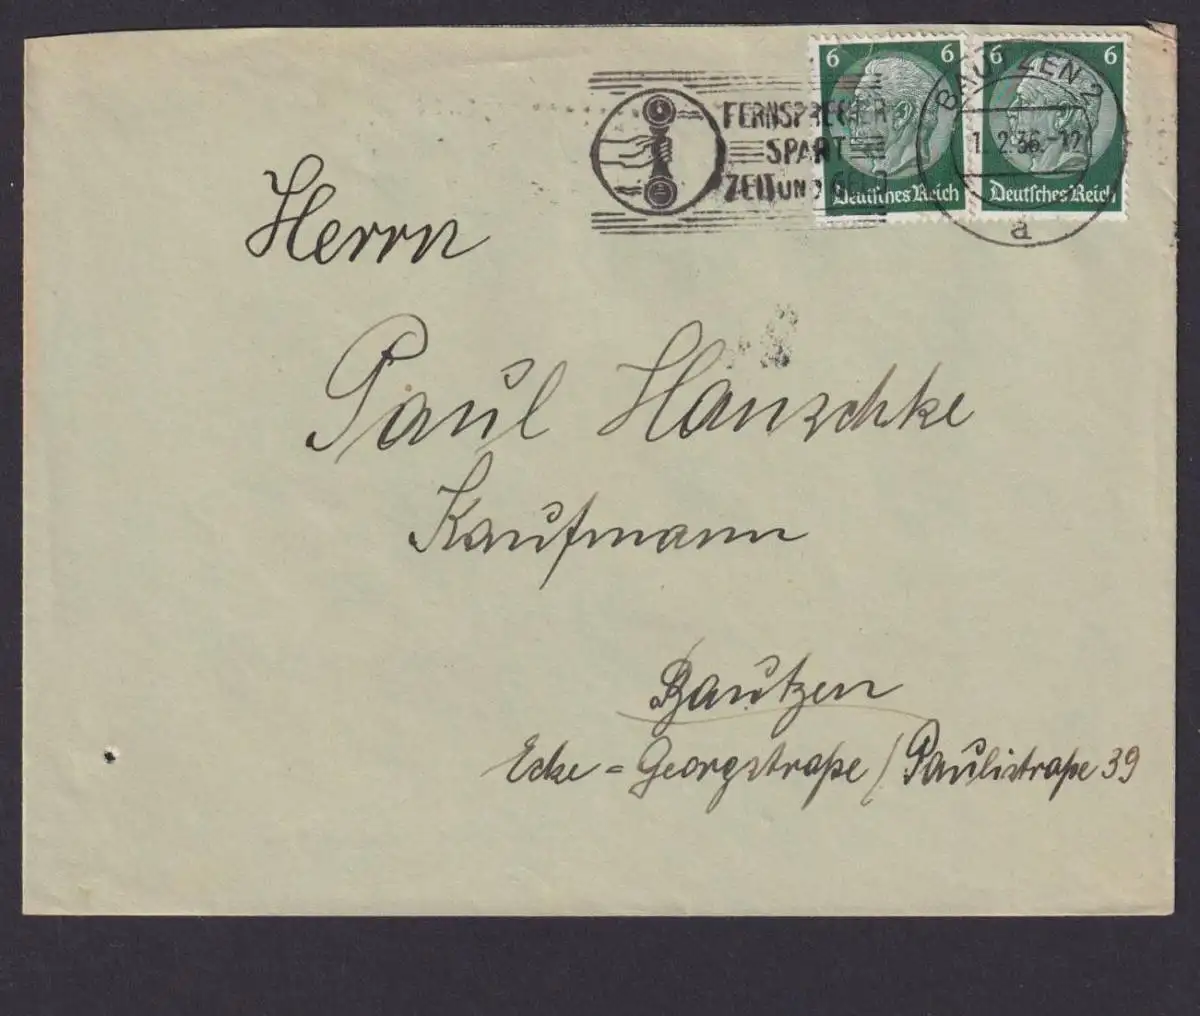 6 6 6 6
BAUTZEN 2
1.2.36.-12
a
Deutsches Reich Deutsches Reich
FERNSPRECHER
SPART
ZEIT UND GELD
Herrn
Paul Hänschke
Kaufmann
Bautzen
Ecke = Georgstraße / Paulistraße 39